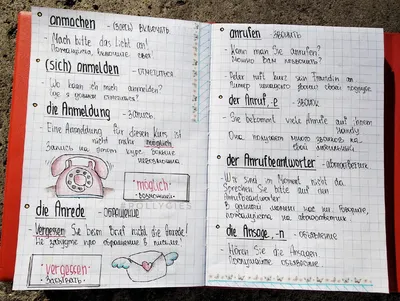 anmachen - (здесь) включать
- Mach bitte das Licht an!
Пожалуйста, включите свет
(sich) anmelden - отметиться
- Wo kann ich mich anmelden?
Где я должен отметиться?
die Anmeldung - запись
- Eine Anmeldung für diesen Kurs ist
nicht mehr möglich
Запись на этот курс больше
невозможна
möglich
возможный
die Anrede - обращение
- Vergessen Sie beim Brief nicht die Anrede!
Не забудьте про обращение в письме!
vergessen
забывать
anrufen - звонить
- Kann man Sie anrufen?
Можно Вам позвонить?
- Peter ruft kurz sein Freundin an
Петер звонит своей подруге
der Anruf, -e - звонок
- Sie bekommt viele Anrufe auf ihrem
Handy
Она получает много звонков на
свой мобильный
der Anrufbeantworter - автоответчик
- Wir sind im Moment nicht da.
Sprechen Sie bitte auf den
Anrufbeantworter
В данный момент нас нет дома,
пожалуйста на автоответчик
die Ansage, -n - объявление
- Hören Sie die Ansagen
Прослушайте объявление